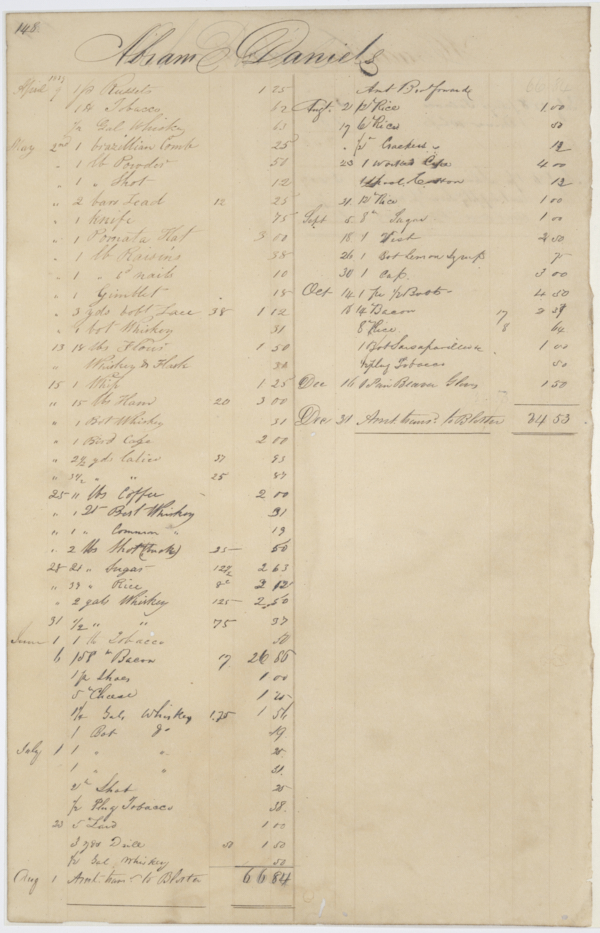 148
Abram Daniels
April 7 1 pr Russets 1 25
1 lb Tobacco 12
1/2 Gal Whiskey 63
May 2nd 1 brazillian Comb 25
" 1 lb Powder 51
" 1 " Shot 12
" 2 bars Lead 12 25
" 1 Knife 75
" 1 Hat 3 00
" 1 lb Raisins 38
" 1 " nails 10
" 1 Gimblet 18
" 3 yds Lace 38 1 12
" 1 bot Whiskey 31
13 18 lbs Flour 1 50
" Whiskey & Flask
15 1 Whip 1 25
" 15 lbs Ham 20 3 00
" 1 Bot Whiskey 31
" 1 Bird Cage 2 00
" yds Calico 37 93
" 3 1/2 " " 25 87
25 11 lbs Coffee 2 00
" 1 Bot Whiskey 31
" 1 " Common " 19
" 2 lbs Shot 25 50
28 21 " Sugar 12 1/2 2 63
" " Rice 2 12
" 2 gals Whiskey 125 2.50
31 1/2 " " 75 37
June 1 1 lb Tobacco 50
6 158 " Bacon 17 26 86
1 pr Shoes 1 00
5 " Cheese 1 25
Gals Whiskey 1.25 1 56
1 Bot Do
July 1 1 " " 25
1 " " 31
2 " Shot 25
1/2 Plug Tobacco 38
23 5 " Lead 1 00
3 yds Drill 50 1 50
1/2 Gal Whiskey 50
Aug 1 Amt trans to Blotter 66 84
Amt Bro't forward
Augt. 21 12 " Rice 1 00
17 6 " Rice 50
" 1 pr Crackers 12
23 1 Cape 4 00
1 12
21 12 " Rice 1 00
Sept 5 8 " Sugar 1 00
18 1 Vest 2 50
26 1 Bot Lemon Syrup 75
30 1 Cap. 3 00
Oct 14 1 pr Boots 4 50
16 14 " Bacon 17
8 " Rice 8 64
1 Bot Sarsaparilla 1 00
plug Tobacco 50
Dec 16 1 Pair Beaver Gloves 1 50
Dec 31 Amt trans. to Blotter 34 53